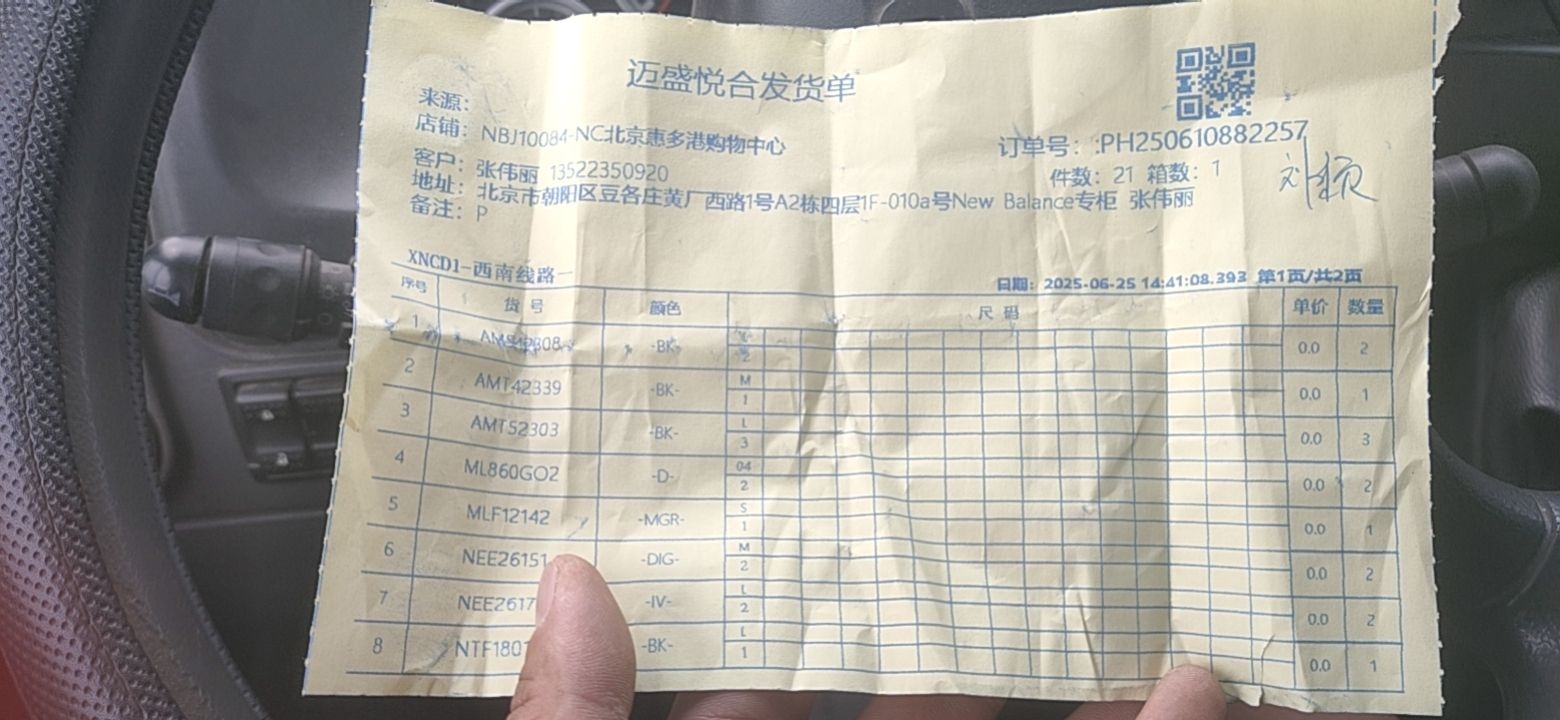 迈盛悦合发货单
来源:
店铺: NBJ10084-NC北京惠多港购物中心
订单号: :PH250610882257
客户: 张伟丽 13522350920
件数: 21 箱数: 1
地址: 北京市朝阳区豆各庄黄厂西路1号A2栋四层1F-010a号New Balance专柜 张伟丽
备注: P
XNCD1-西南线路一
日期: 2025-06-25 14:41:08.393 第1页/共2页
序号 货号 颜色 尺码 单价 数量
1 -BK- 2 0.0 2
2 AMT42339 -BK- M 1 0.0 1
3 AMT52303 -BK- L 3 0.0 3
4 ML860GO2 -D- 04 2 0.0 2
5 MLF12142 -MGR- S 1 0.0 1
6 NEE26151 -DIG- M 2 0.0 2
7 -IV- L 2 0.0 2
8 -BK- L 1 0.0 1